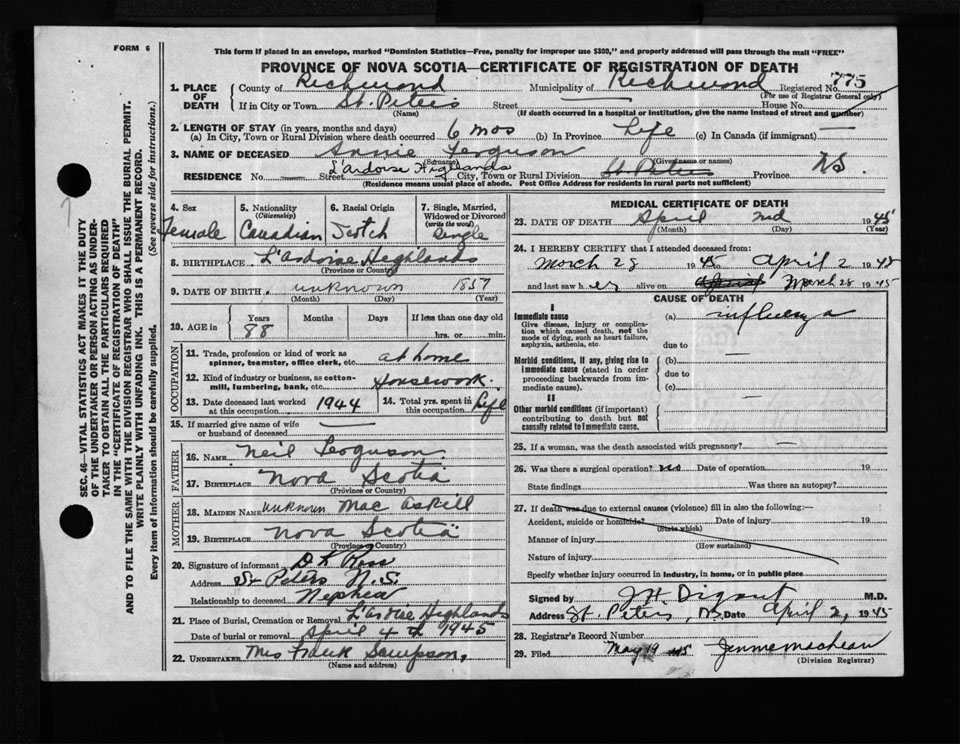 FORM 6
This form if placed in an envelope, marked "Dominion Statistics—Free, penalty for improper use $300," and properly addressed will pass through the mail "FREE"
PROVINCE OF NOVA SCOTIA—CERTIFICATE OF REGISTRATION OF DEATH
775
1. PLACE OF DEATH
County of Richmond Municipality of Richmond Registered No.
(For use of Registrar General only)
If in City or Town St. Peters Street House No.
(Name) (If death occurred in a hospital or institution, give the name instead of street and number)
2. LENGTH OF STAY (in years, months and days)
(a) In City, Town or Rural Division where death occurred 6 mos (b) In Province Life (c) In Canada (if immigrant) —
3. NAME OF DECEASED Annie Ferguson
(Surname) (Given name or names)
RESIDENCE No. — Street L'ardoise Highlands City, Town or Rural Division St. Peters Province N.S.
(Residence means usual place of abode. Post Office Address for residents in rural parts not sufficient)
4. Sex Female
5. Nationality (Citizenship) Canadian
6. Racial Origin Scotch
7. Single, Married, Widowed or Divorced (write the word) Single
8. BIRTHPLACE L'ardoise Highlands
(Province or Country)
9. DATE OF BIRTH unknown 1857
(Month) (Day) (Year)
10. AGE in Years 88 Months Days If less than one day old
hrs. or min.
OCCUPATION
11. Trade, profession or kind of work as spinner, teamster, office clerk, etc. at home
12. Kind of industry or business, as cotton-mill, lumbering, bank, etc. Housework.
13. Date deceased last worked at this occupation 1944
14. Total yrs. spent in this occupation Life
15. If married give name of wife or husband of deceased —
FATHER
16. NAME Neil Ferguson
17. BIRTHPLACE Nova Scotia
(Province or Country)
MOTHER
18. MAIDEN NAME unknown Mac Askill
19. BIRTHPLACE Nova Scotia
(Province or Country)
20. Signature of informant D L Ross
Address St Peters N.S.
Relationship to deceased Nephew
21. Place of Burial, Cremation or Removal L'ardoise Highlands
Date of burial or removal April 4th 1945
22. UNDERTAKER Mrs Frank Sampson,
(Name and address)
MEDICAL CERTIFICATE OF DEATH
23. DATE OF DEATH April 2nd 1945
(Month) (Day) (Year)
24. I HEREBY CERTIFY that I attended deceased from:
March 28 1945 to April 2 1945
and last saw her alive on April March 28 1945
CAUSE OF DEATH
I
Immediate cause (a) influenza
Give disease, injury or complication which caused death, not the mode of dying, such as heart failure, asphyxia, asthenia, etc.
due to —
Morbid conditions, if any, giving rise to immediate cause (stated in order proceeding backwards from immediate cause).
(b)
due to —
(c)
II
Other morbid conditions (if important) contributing to death but not causally related to immediate cause. —
25. If a woman, was the death associated with pregnancy? —
26. Was there a surgical operation? no Date of operation 19
State findings Was there an autopsy?
27. If death was due to external causes (violence) fill in also the following:—
Accident, suicide or homicide? Date of injury 19
(State which)
Manner of injury
(How sustained)
Nature of injury
Specify whether injury occurred in industry, in home, or in public place
Signed by J H Digout M.D.
Address St. Peters, N.S. Date April 2, 1945
28. Registrar's Record Number
29. Filed May 19 1945
(Division Registrar)
SEC. 46—VITAL STATISTICS ACT MAKES IT THE DUTY
OF THE UNDERTAKER OR PERSON ACTING AS UNDERTAKER TO OBTAIN ALL THE PARTICULARS REQUIRED
IN THE "CERTIFICATE OF REGISTRATION OF DEATH"
AND TO FILE THE SAME WITH THE DIVISION REGISTRAR WHO SHALL ISSUE THE BURIAL PERMIT.
WRITE PLAINLY WITH UNFADING INK. THIS IS A PERMANENT RECORD.
Every item of information should be carefully supplied. (See reverse side for instructions.)